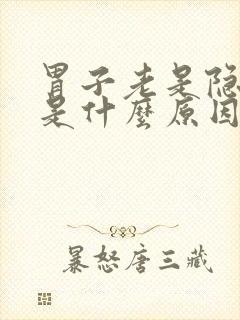 胃子老是隐
是什麼原因
暴怒唐三藏